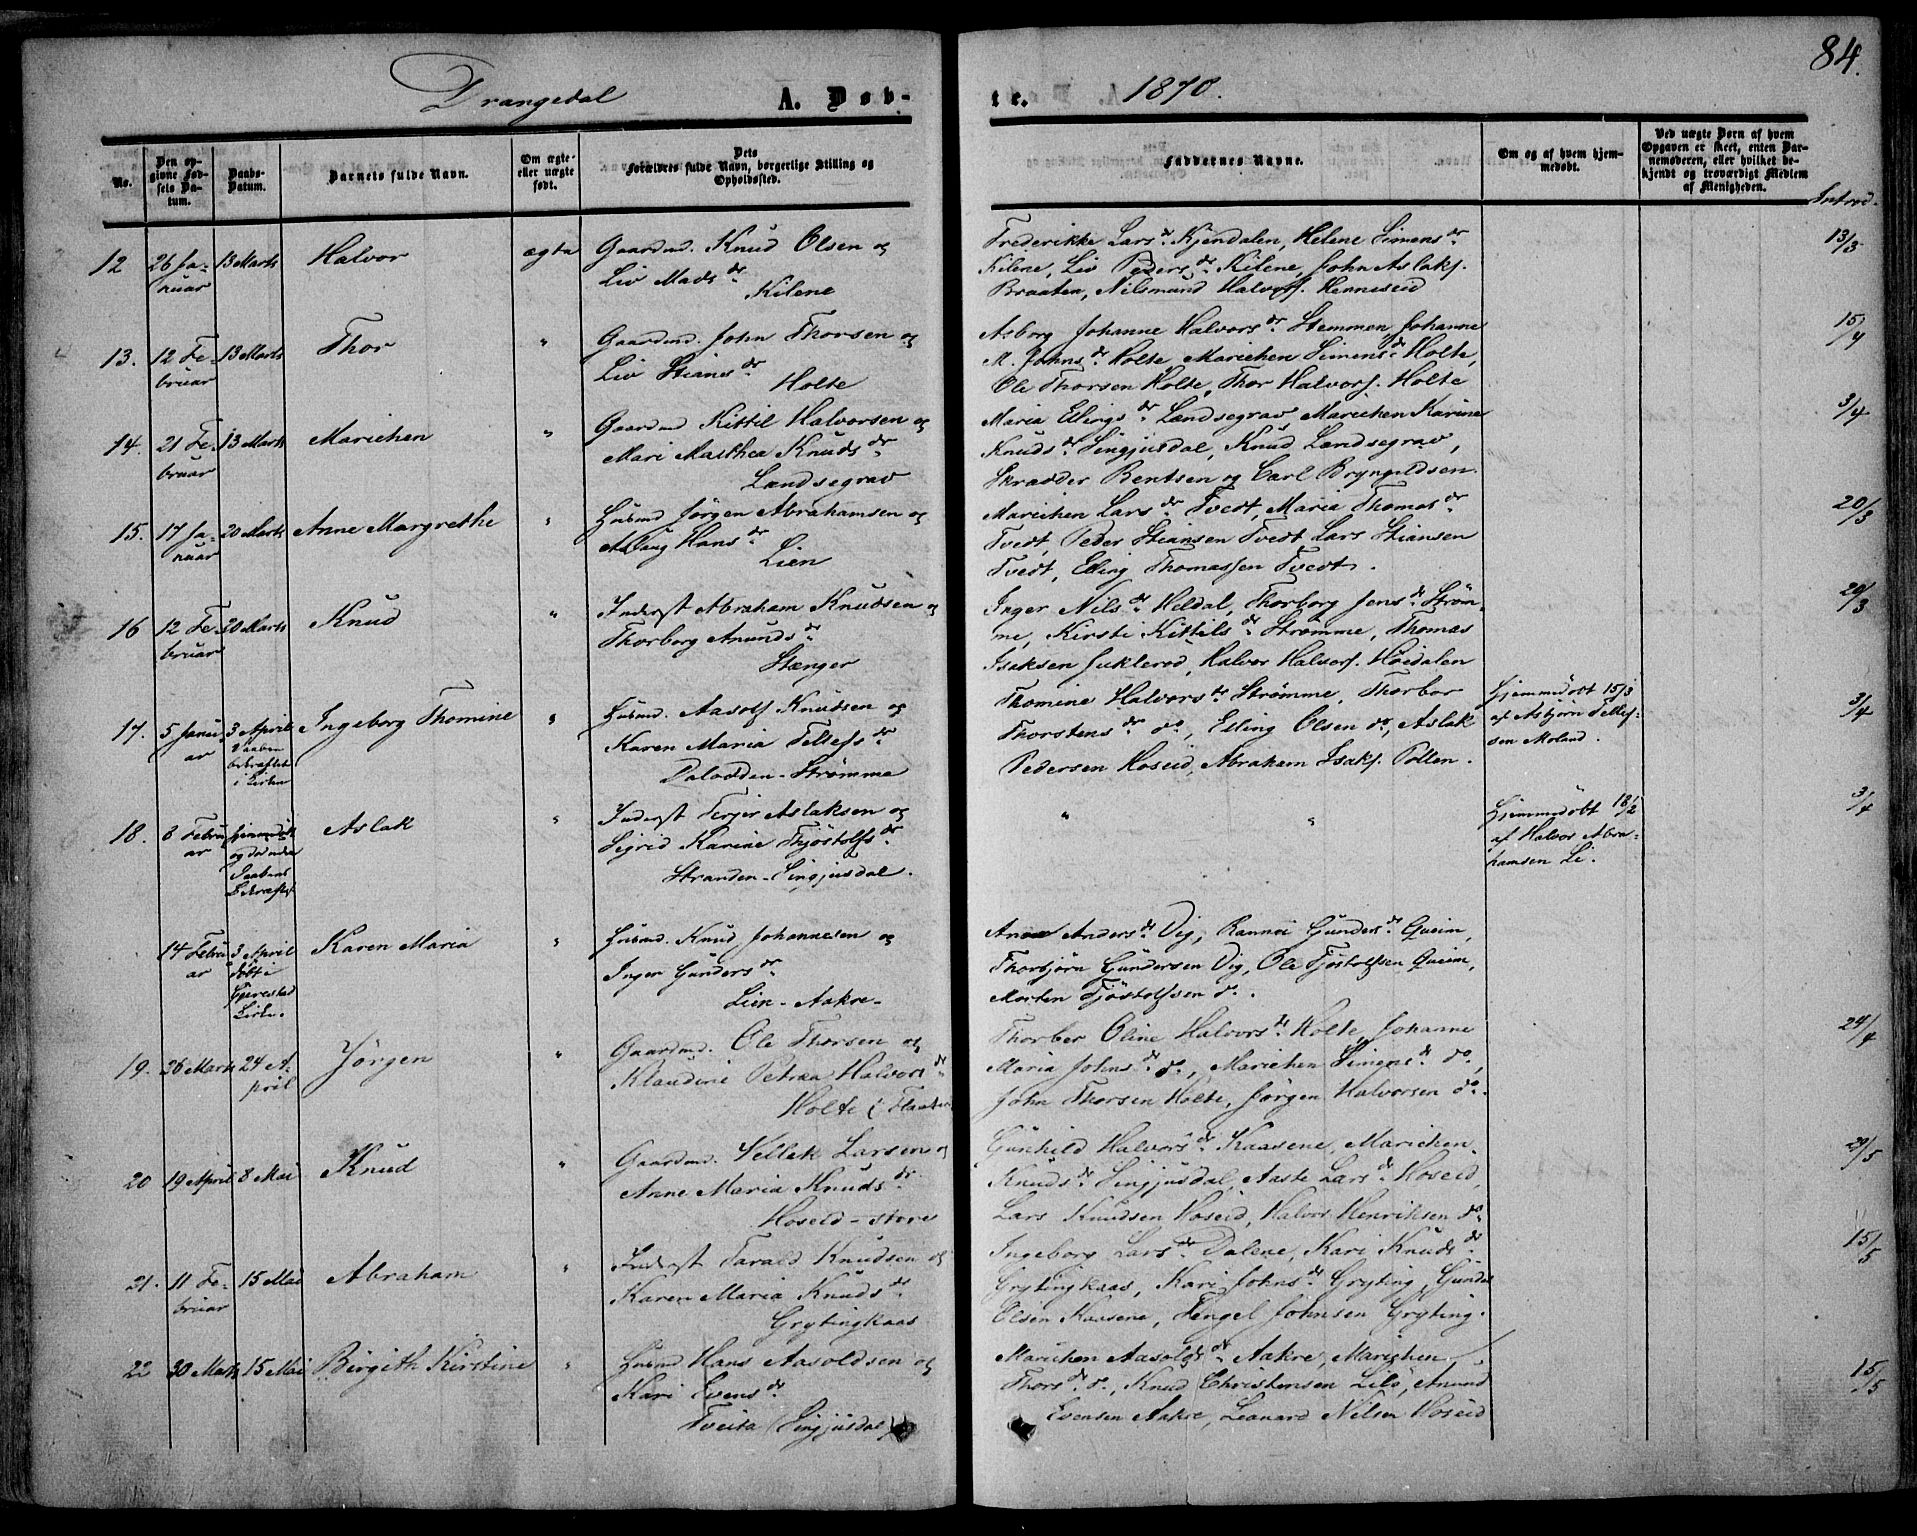 84.
Drangedal A. Døb-
te. 1870.
No.
Den op-
givne Fød-
sels Da-
tum.
Daabs-
Datum.
Barnets fulde Navn.
Om ægte-
eller uægte
født.
Dets
Forældres fulde Navn, borgerlige Stilling og
Opholdssted.
Faddernes Navne.
Om og af hvem hjem-
medøbt.
Ved uægte Børn af hvem
Opgaven er skeet, enten Bar-
nemoderen, eller hvilket be-
kjendt og troværdigt Medlem
af Menigheden.
Introd.
12 26 Ja- 13 Marts Halvor ægte Gaardmd. Knud Olsen og
nuar Liv Madsdr.
Kilene
Frederikke Larsdr. Kjendalen, Helene Simensdr.
Kilene, Liv Pedersdr. Kilene, John Aslaks.
Braaten, Nilsmund Halvors. Henneseid
13/3
13. 12 Fe- 13 Marts Thor " Gaardmd. John Thorsen og
bruar Liv Stiansdr.
Holte
Asborg Johanne Halvorsdr. Stemmen, Johanne
M. Johnsdr. Holte, Marichen Simensdr. Holte,
Ole Thorsen Holte, Thor Halvors. Holte
15/4
14. 21 Fe- 13 Marts Marichen " Gaardmd Kittil Halvorsen og
bruar Mari Marthea Knudsdr.
Landsegrav
Maria Ellingsdr. Landsegrav, Marichen Karine
Knudsdr. Singjusdal, Knud Landsegrav,
Skrædder Bentsen og Carl Bryngildsen.
3/4
15. 17 Ja- 20 Marts Anne Margrethe " Husmd Jörgen Abrahamsen og
nuar Aslaug Hansdr.
Lien
Marichen Larsdr. Tvedt, Maria Thomasdr.
Tvedt, Peder Stiansen Tvedt Lars Stiansen
Tvedt, Elling Thomassen Tvedt.
20/3
16 12 Fe- 20 Marts Knud " Inderst Abraham Knudsen og
bruar Thorborg Anundsdr.
Stænger
Inger Nilsdr. Heldal, Thorborg Jensdr. Strøm-
me, Kirsti Kittilsdr. Strømme, Thomas
Isaksen Juklerød, Halvor Halvors. Høidalen
20/3
17. 5 Janu- 3 April Ingeborg Thomine " Husmd. Aasolf Knudsen og
ar Daaben Karen Maria Tellefsdr.
bekræftet
i Kirken Dalodden-Strømme
Thomine Halvorsdr. Strømme, Thorbor
Thorstensdr. do, Elling Olsen do, Aslak
Pedersen Hoseid, Abraham Isaks. Pollen.
Hjemmedøbt 15/3
af Asbjørn Tellef-
sen Moland.
3/4
18. 8 Febru- Hjemmedøbt Aslak " Inderst Terjer Aslaksen og
ar Sigrid Karine Thjöstolfsdr.
Daabens
Bekræftelse Stranden-Singjusdal.
" "
Hjemmedøbt 18/2
af Halvor Abra-
hamsen Li.
3/4
14 Febru- 3 April Karen Maria " Husmd. Knud Johannesen og
ar døbt i Inger Gundersdr.
Gjerestad
Kirke. Lien-Aakre-
Anne Andersdr. Vig, Rannei Gundersdr. Queim,
Thorbjörn Gundersen Vig, Ole Tjöstolfsen Queim,
Morten Tjöstolfsen do.
19. 26 Marts 24 A- Jörgen " Gaardmd. Ole Thorsen og
pril Klaudine Petrea Halvorsdr.
Holte i
Thorber Oline Halvorsdr. Holte, Johanne
Maria Johnsdr. do, Marichen Simensdr. do,
John Thorsen Holte, Jörgen Halvorsen do.
24/4
20 19 April 8 Mai Knud " Gaardmd. Vellek Larsen og
Anne Maria Knudsdr.
Hoseid-store
Gunhild Halvorsdr. Kaasene, Marichen
Knudsdr. Singjusdal, Aaste Larsdr. Hoseid,
Lars Knudsen Hoseid, Halvor Henriksen do.
29/5
21. 11 Fe- 15 Mai Abraham " Inderst Tarald Knudsen og
bruar Karen Maria Knudsdr.
Grytingkaas
Ingeborg Larsdr. Dalene, Kari Knudsdr.
Grytingkaas, Kari Johnsdr. Gryting, Gunder
Olsen Kaasene, Tengel Johnsen Gryting.
15/5
22 30 Marts 15 Mai Birgith Kirstine " Husmd Hans Aasoldsen og
Kari Evensdr.
Tveita (Singjusdal)
Marichen Aasolfsdr. Aakre, Marichen
Thorsdr. do, Knud Christensen Lilö, Anund
Evensen Aakre, Leonard Nilsen Hoseid
15/5